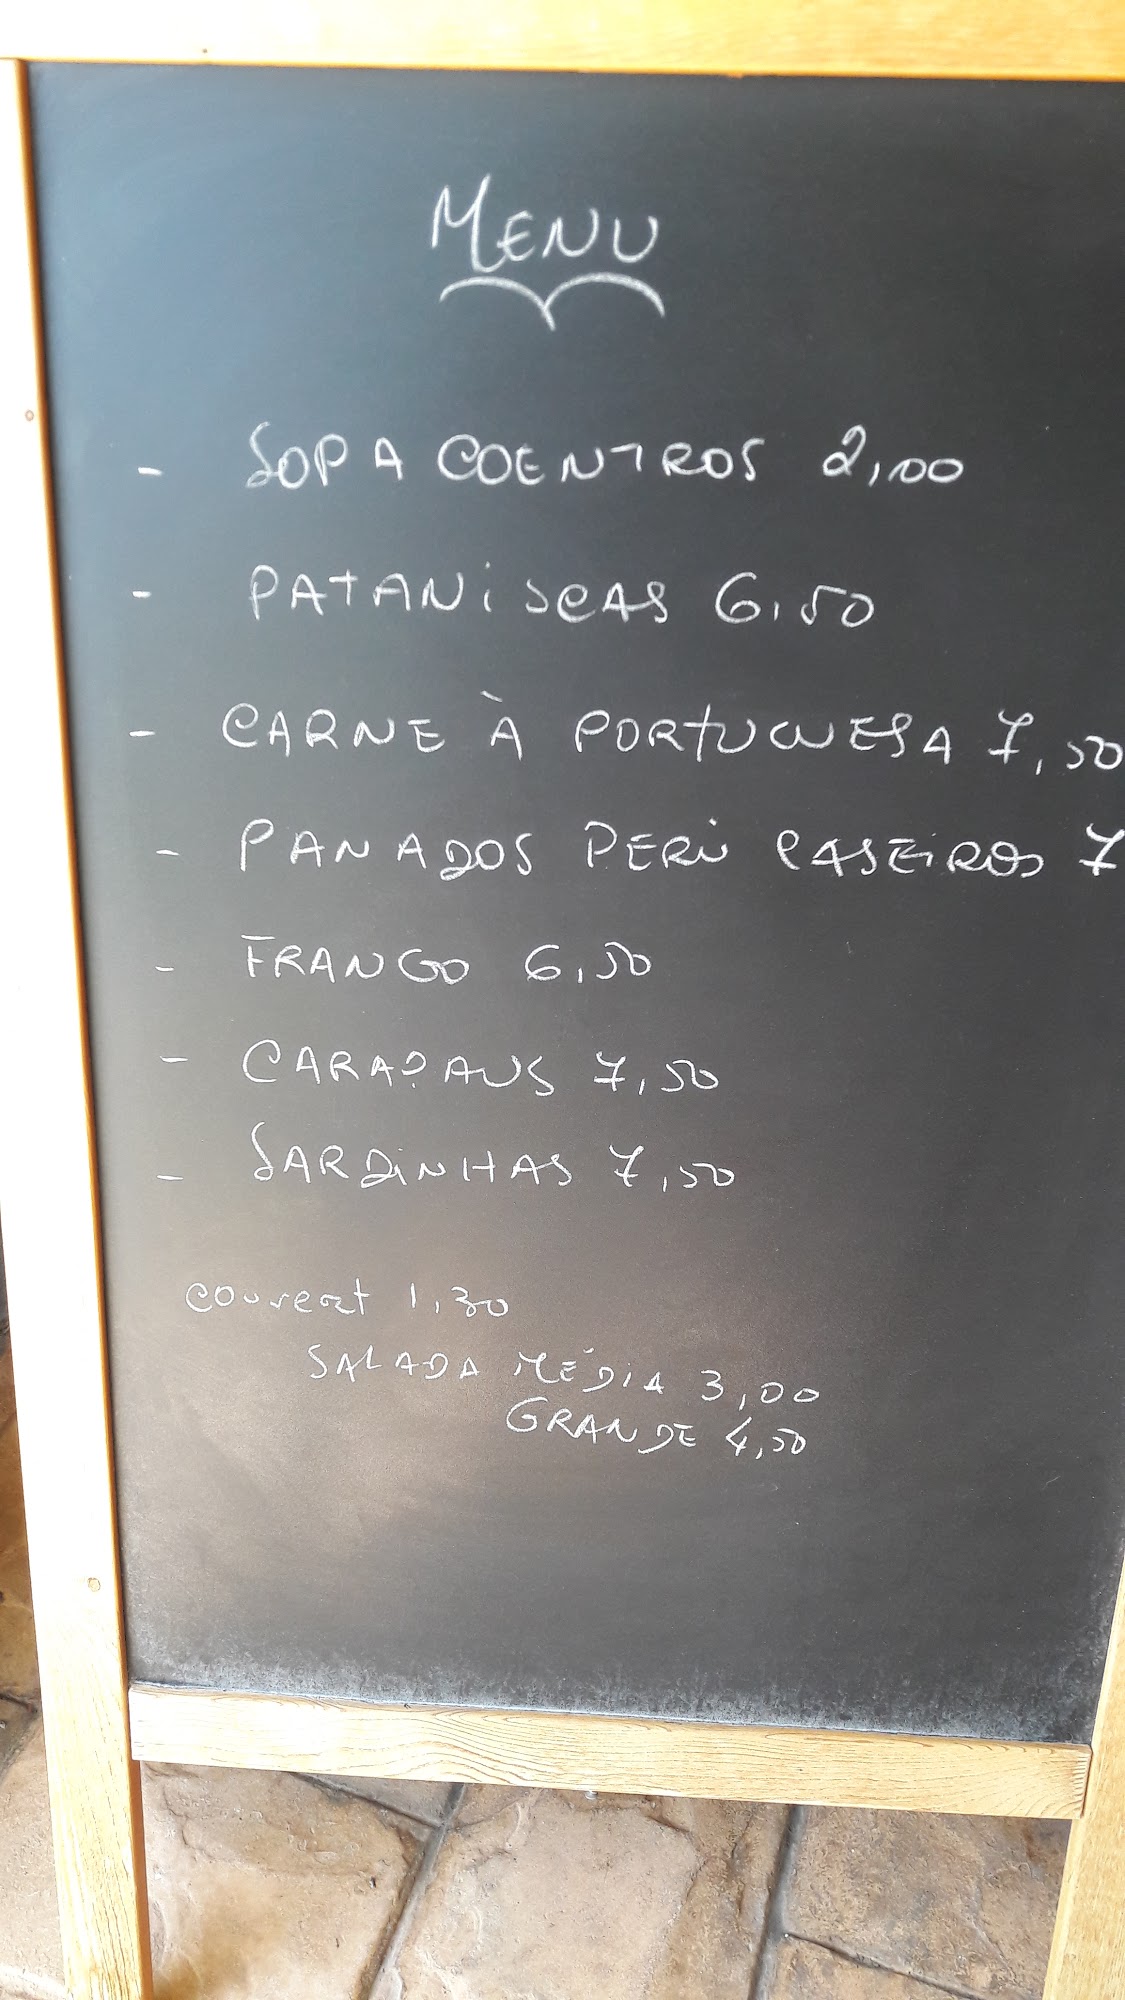 MENU
- SOPA COENTROS 2,00
- PATANiSCAS 6,50
- CARNE À PORTUGUESA 7,50
- PANADOS PERU CASEiROS 7
- FRANGO 6,50
- CARAPAUS 7,50
- SARDiNHAS 7,50
couvert 1,30
SALADA MÉDiA 3,00
GRANDE 4,50